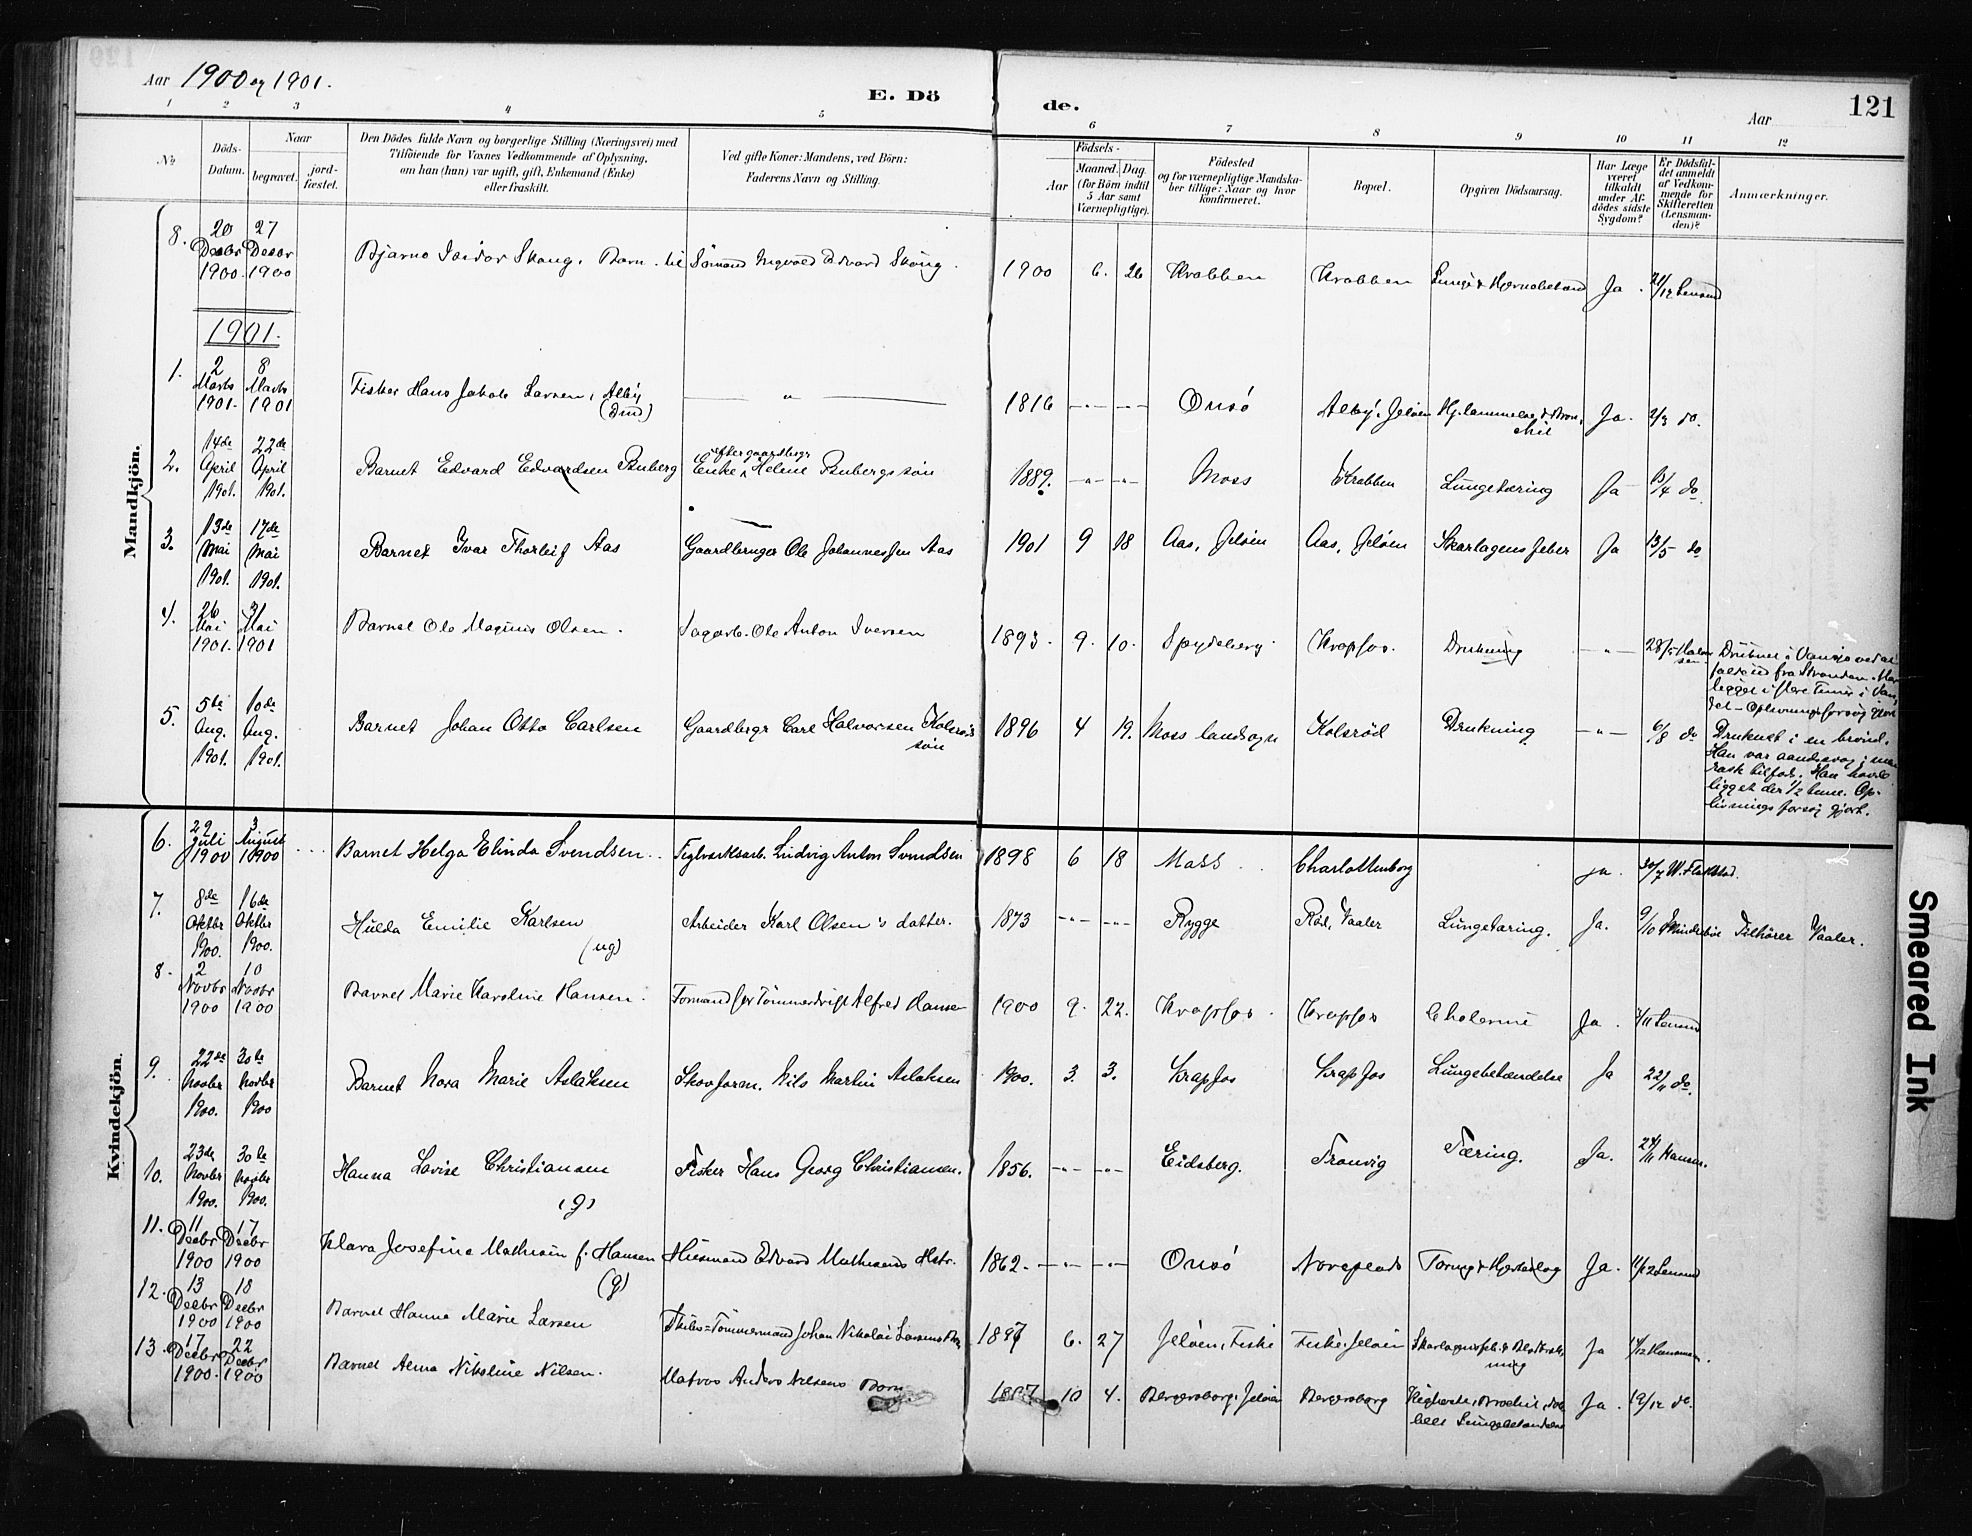 Aar 1900 og 1901.
E. Dö
de.
Aar
121
1 2 3 4 5 6 7 8 9 10 11 12
No
Döds-Datum.
Naar
begravet.
jord-fæstet.
Den Dödes fulde Navn og borgerlige Stilling (Næringsvei) med
Tilföiende for Voxnes Vedkommende af Oplysning,
om han (hun) var ugift, gift, Enkemand (Enke)
eller fraskilt.
Ved gifte Koner: Mandens, ved Börn:
Faderens Navn og Stilling.
Födsels-
Aar
Maaned. Dag.
(for Börn indtil
5 Aar samt
Værnepligtige).
Födested
og for værnepligtige Mandska-
ber tillige: Naar og hvor
konfirmeret.
Bopæl.
Opgiven Dödsaarsag.
Har Læge
været
tilkaldt
under Af-
dödes sidste
Sygdom?
Er Dödsfal-
det anmeldt
af Vedkom-
mende for
Skifteretten
(Lensman-
den)?
Anmærkninger.
Mandkjön.
8. 20 Decbr 1900. 27 Decbr 1900 Bjarne Isidor Skaug, Barn til Sömand Ingvald Edvard Skaug. 1900 6. 26 Krabben Krabben Lunge & Hjernebetænd Ja. 21/12 Lensmd
1901.
1. 2 Marts 1901. 8 Marts 1901 Fisker Hans Jakob Larsen, Alby — " — 1816 — " — — " — Onsö Alby, Jelöen Ja. 2/3 do.
2. 14de April 1901. 22de April 1901. Barnet Edvard Edvardsen Enke efter gaardbrgr Helene 1889. — " — — " — Moss Krabben Lungetæring Ja 15/4 do
3. 13de Mai 1901. 17de Mai 1901. Barnet Ivar Thorleif Aas Gaardbruger Ole Johannessen Aas 1901 9 18 Aas, Jelöen Aas, Jelöen Skarlagensfeber Ja 13/5 do
4. 26 Mai 1901. 31 Mai 1901 Barnet Ole Magnus Olsen. Sagarb. Ole Anton Iversen 1893. 9. 10. Spydeberg. Krapfos. Drukning — " — 28/5 Druknet i Vansjö ved at
falde ud fra Stranden. Har
ligget i flere Timer i Van
det — Oplivningsforsög gjort
5. 5te Aug. 1901. 10de Aug. 1901. Barnet Johan Otto Carlsen Gaardbrgr Carl Halvorsen Kolsröds sön 1896 4 19. Moss landsogn Kolsröd Drukning — " — 6/8 do Druknet i en brönd.
Han var aandssvag, men
rask tilfods. Han havde
ligget der 1/2 time. Op-
livningsforsög gjort.
Kvindekjön.
6. 29 Juli 1900 3 August 1900 Barnet Helga Elinda Svendsen. Teglværksarb. Ludvig Anton Svendsen 1898 6 18 Moss. Charlottenborg ja. 30/7
7. 8de Oktbr 1900. 16de Oktbr 1900. Hulda Emilie Karlsen (ug) Arbeider Karl Olsen's datter. 1873 — " — — " — Rygge Röd, Vaaler Lungetæring. Ja. 9/10 Tilhörer Vaaler.
8. 2 Novbr 1900 10 Novbr 1900 Barnet Marie Karoline Hansen. Formand for Tömmerdrift Alfred Hansen 1900 9. 22. Krapfos. Krapfos Cholerine Ja. 3/11 Lensmd
9. 22de Novbr 1900. 30te Novbr 1900 Barnet Nora Marie Aslaksen Skovform. Nils Martin Aslaksen 1900. 3. 3. Krapfos Krapfos Lungebetændelse Ja 22/11 do.
10. 23de Novbr 1900. 30te Novbr 1900. Hanna Lovise Christiansen (g) Fisker Hans Georg Christiansen. 1856. — " — — " — Eidsberg. Tronvig Tæring. Ja. 24/11 Hansen.
11. 11 Decbr 1900 17 Decbr 1900 Klara Josefine Mathisen f. Hansen (g) Husmand Edvard Mathisens Hstr. 1862. — " — — " — Onsö Noreplads Tæring & Hjerteslag Ja. 11/12 Lensmd
12. 13 Decbr 1900 18 Decbr 1900 Barnet Hanna Marie Larsen Skibs=Tömmermand Johan Nikolai Larsens Barn 1897 6. 27 Jelöen, Fiske Fiske, Jelöen Ja 14/12 Hansen.
13. 17 Decbr 1900. 22 Decbr 1900 Barnet Alma Nikoline Nilsen. Matros Anders Nilsens Barn 1897 10 4. Bergersborg, Jelöen Bergersborg Kighoste, Bronchit, dob
belt Lungebetændelse Ja. 19/12 do.
Smeared Ink